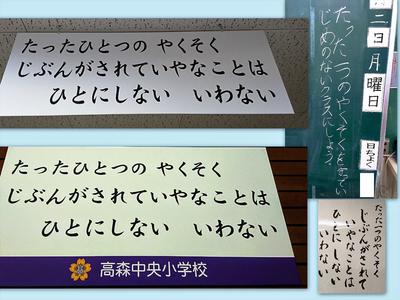 たったひとつの やくそく
じぶんがされていやなことは
ひとにしない いわない
たったひとつの やくそく
じぶんがされていやなことは
ひとにしない いわない
高森中央小学校
二日月曜日
日ちょく
たった一つのやくそくを守ってい
じめのないクラスにしよう。
たった一つのやくそく
じぶんがされて
いやなことは
ひとにしない
いわない